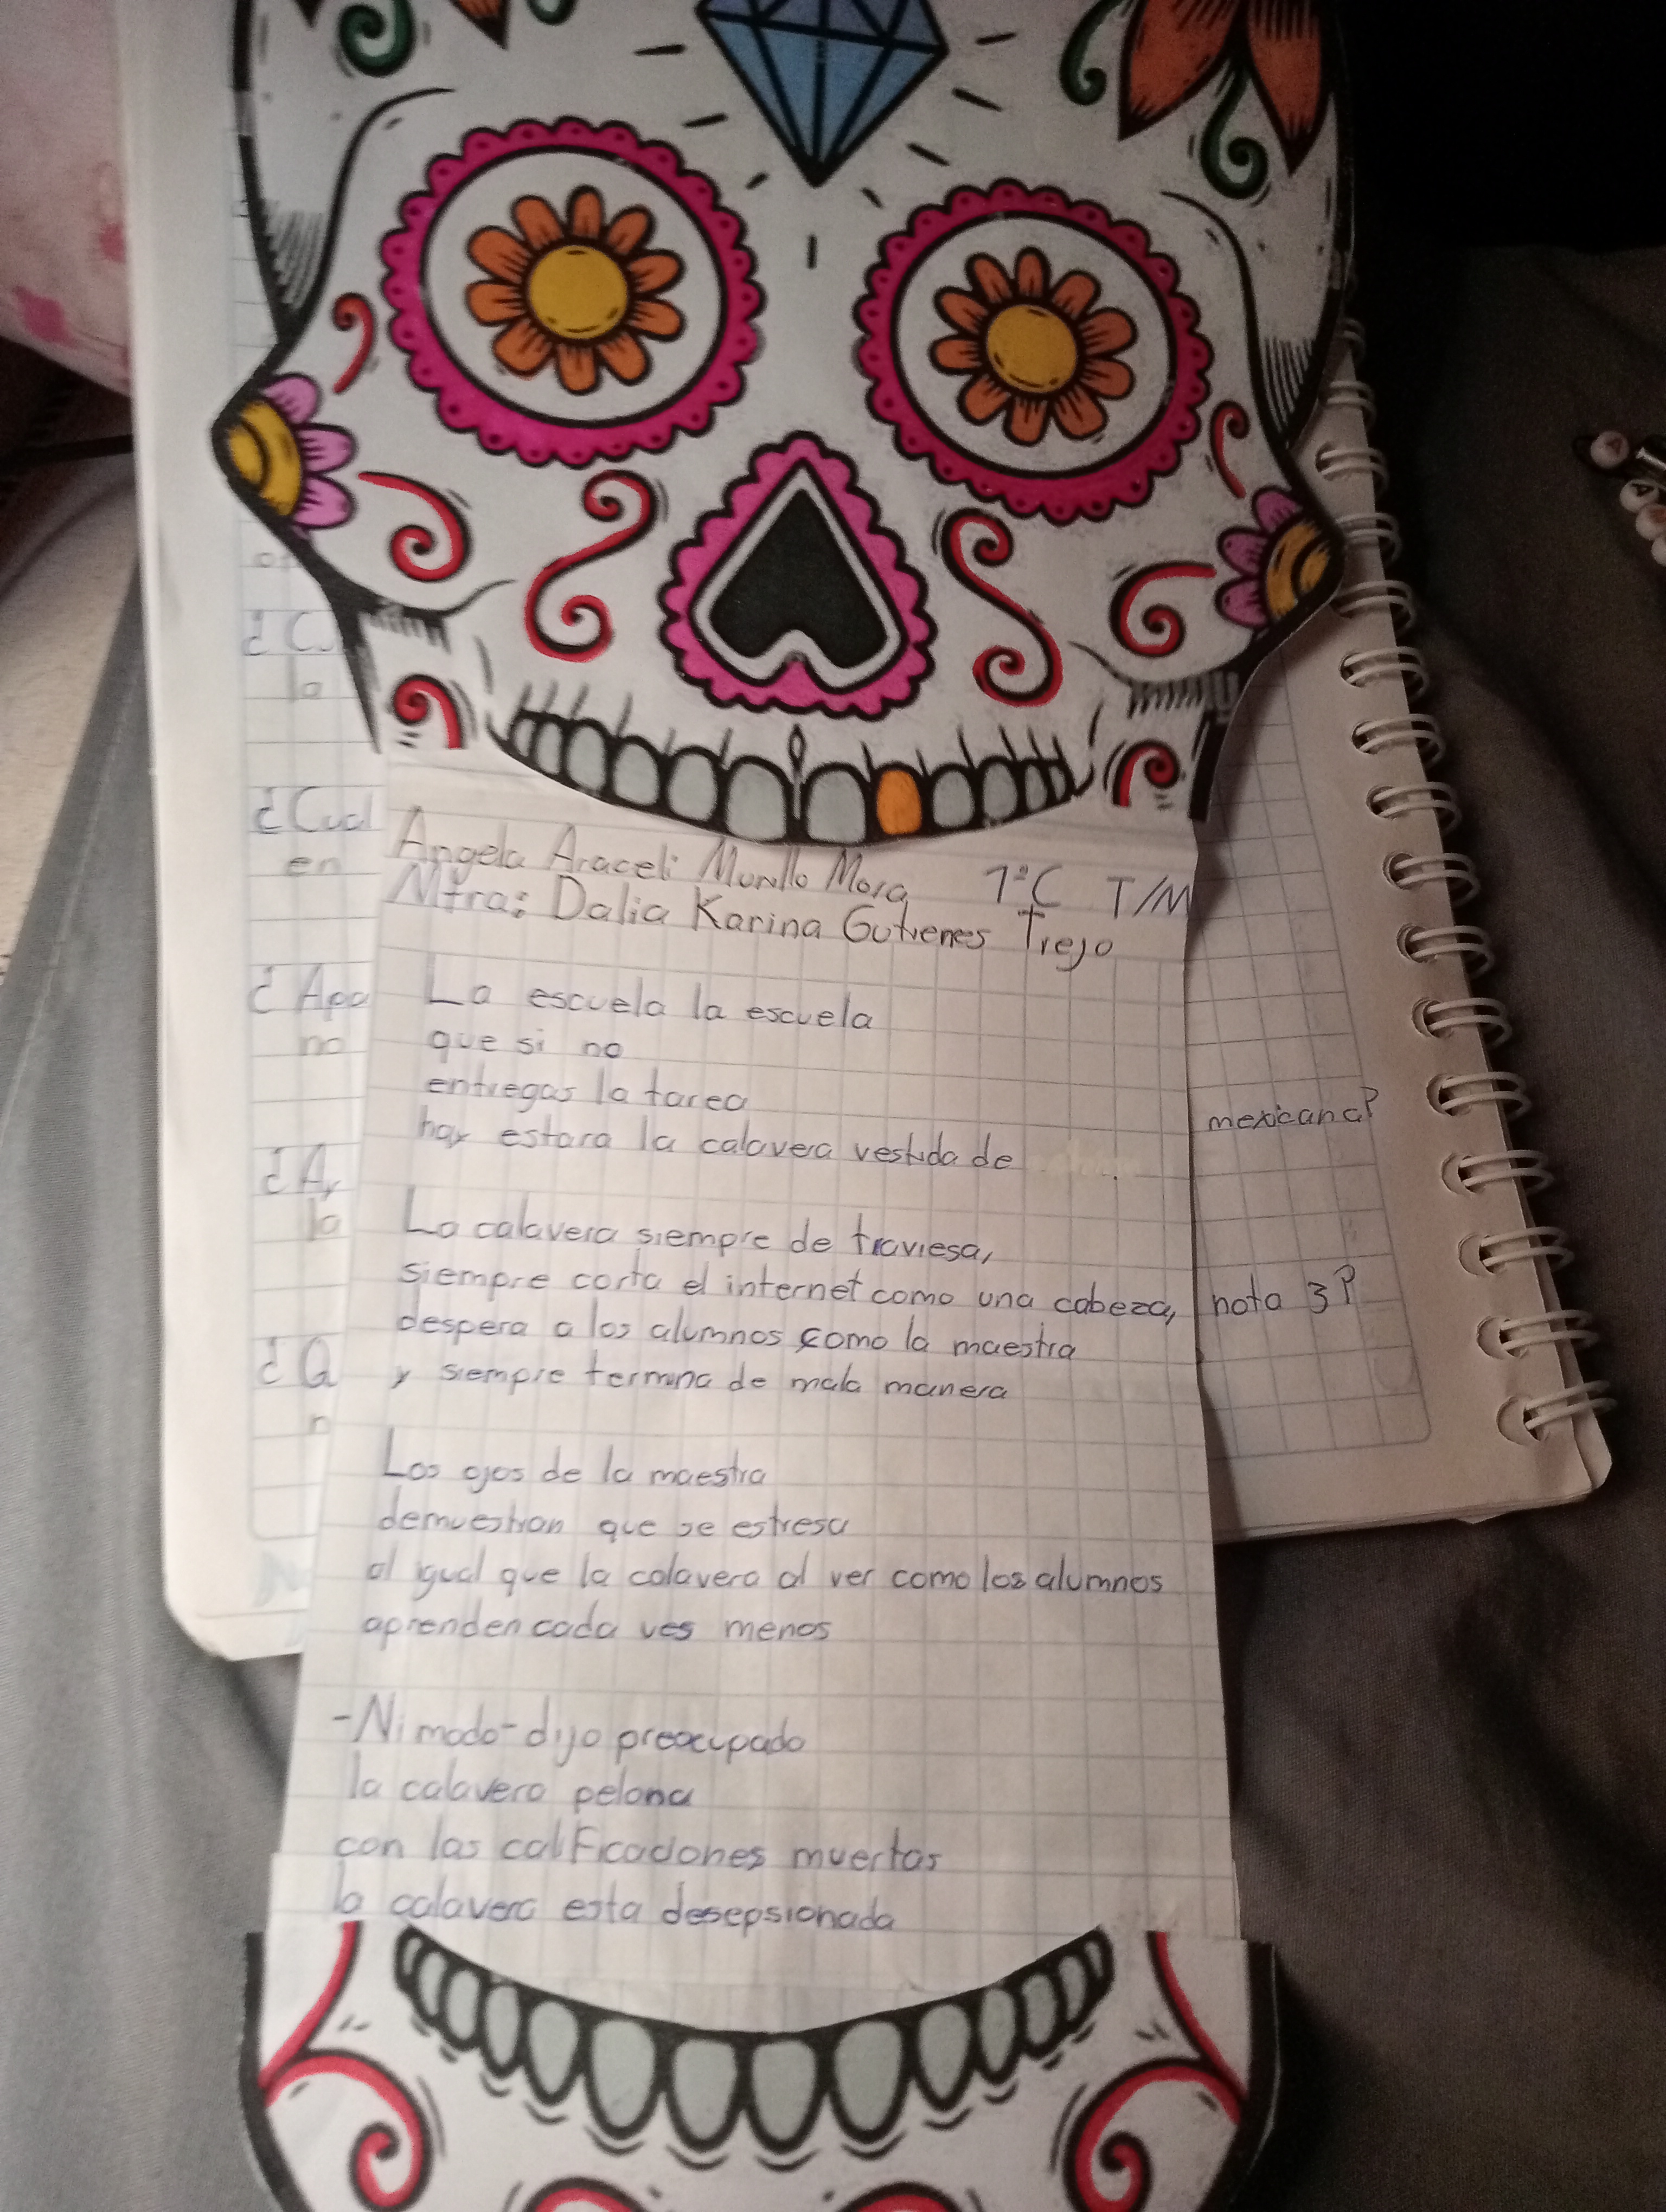 Angela Araceli Murillo Mora 1°C T/M
Mtra: Dalia Karina Gutierres Trejo
La escuela la escuela
que si no
entregas la tarea
hay estara la calavera vestida de
La calavera siempre de traviesa,
siempre corta el internet como una cabeza,
despera a los alumnos como la maestra
y siempre termina de mala manera
Los ojos de la maestra
demuestran que se estresa
al igual que la calavera al ver como los alumnos
aprenden cada ves menos
-Ni modo- dijo preocupado
la calavera pelona
con las calificaciones muertas
la calavera esta desepsionada
¿Cual
en
¿Apa
no
¿Ay
la
¿Q
mexicana?
nota 3?